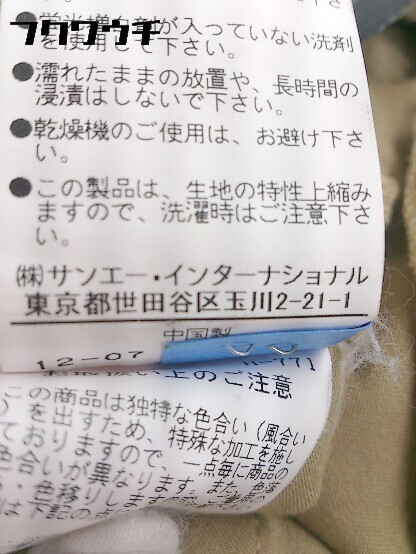 フクウクチ
●蛍光増白剤が入っていない洗剤
を使用して下さい。
●濡れたままの放置や、長時間の
浸漬はしないで下さい。
●乾燥機のご使用は、お避け下さ
い。
●この製品は、生地の特性上縮み
ますので、洗濯時はご注意下さ
い。
㈱サンエー・インターナショナル
東京都世田谷区玉川2-21-1
中国製
12-07
上のご注意
この商品は独特な色合い(風合い
)を出すため、特殊な加工を施し
ておりますので、一点毎に商品の
色合いが異なります。また、色落
・色移りしますので
は下記の点に